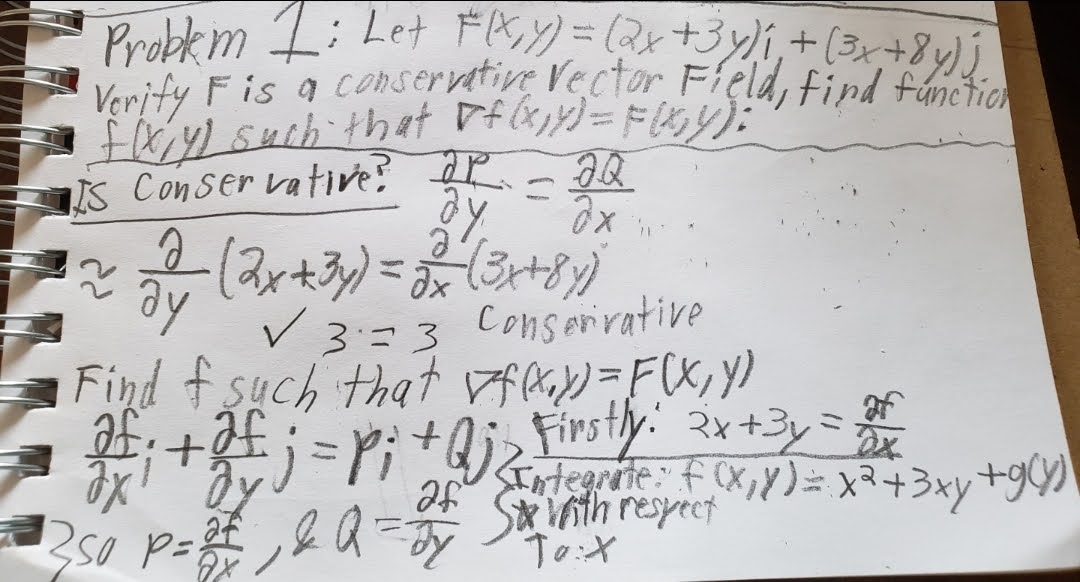 Problem 1: Let F(x,y) = (2x+3y)i + (3x+8y)j
Verify F is a conservative Vector Field, find function
f(x,y) such that ∇f(x,y) = F(x,y):
Is Conservative? ∂P/∂y = ∂Q/∂x
≈ ∂/∂y (2x+3y) = ∂/∂x (3x+8y)
✓ 3 = 3 Conservative
Find f such that ∇f(x,y) = F(x,y)
∂f/∂x i + ∂f/∂y j = Pi + Qj
} so P = ∂f/∂x, & Q = ∂f/∂y
Firstly: 2x+3y = ∂f/∂x
Integrate: f(x,y) = x² + 3xy + g(y)
with respect
To: x